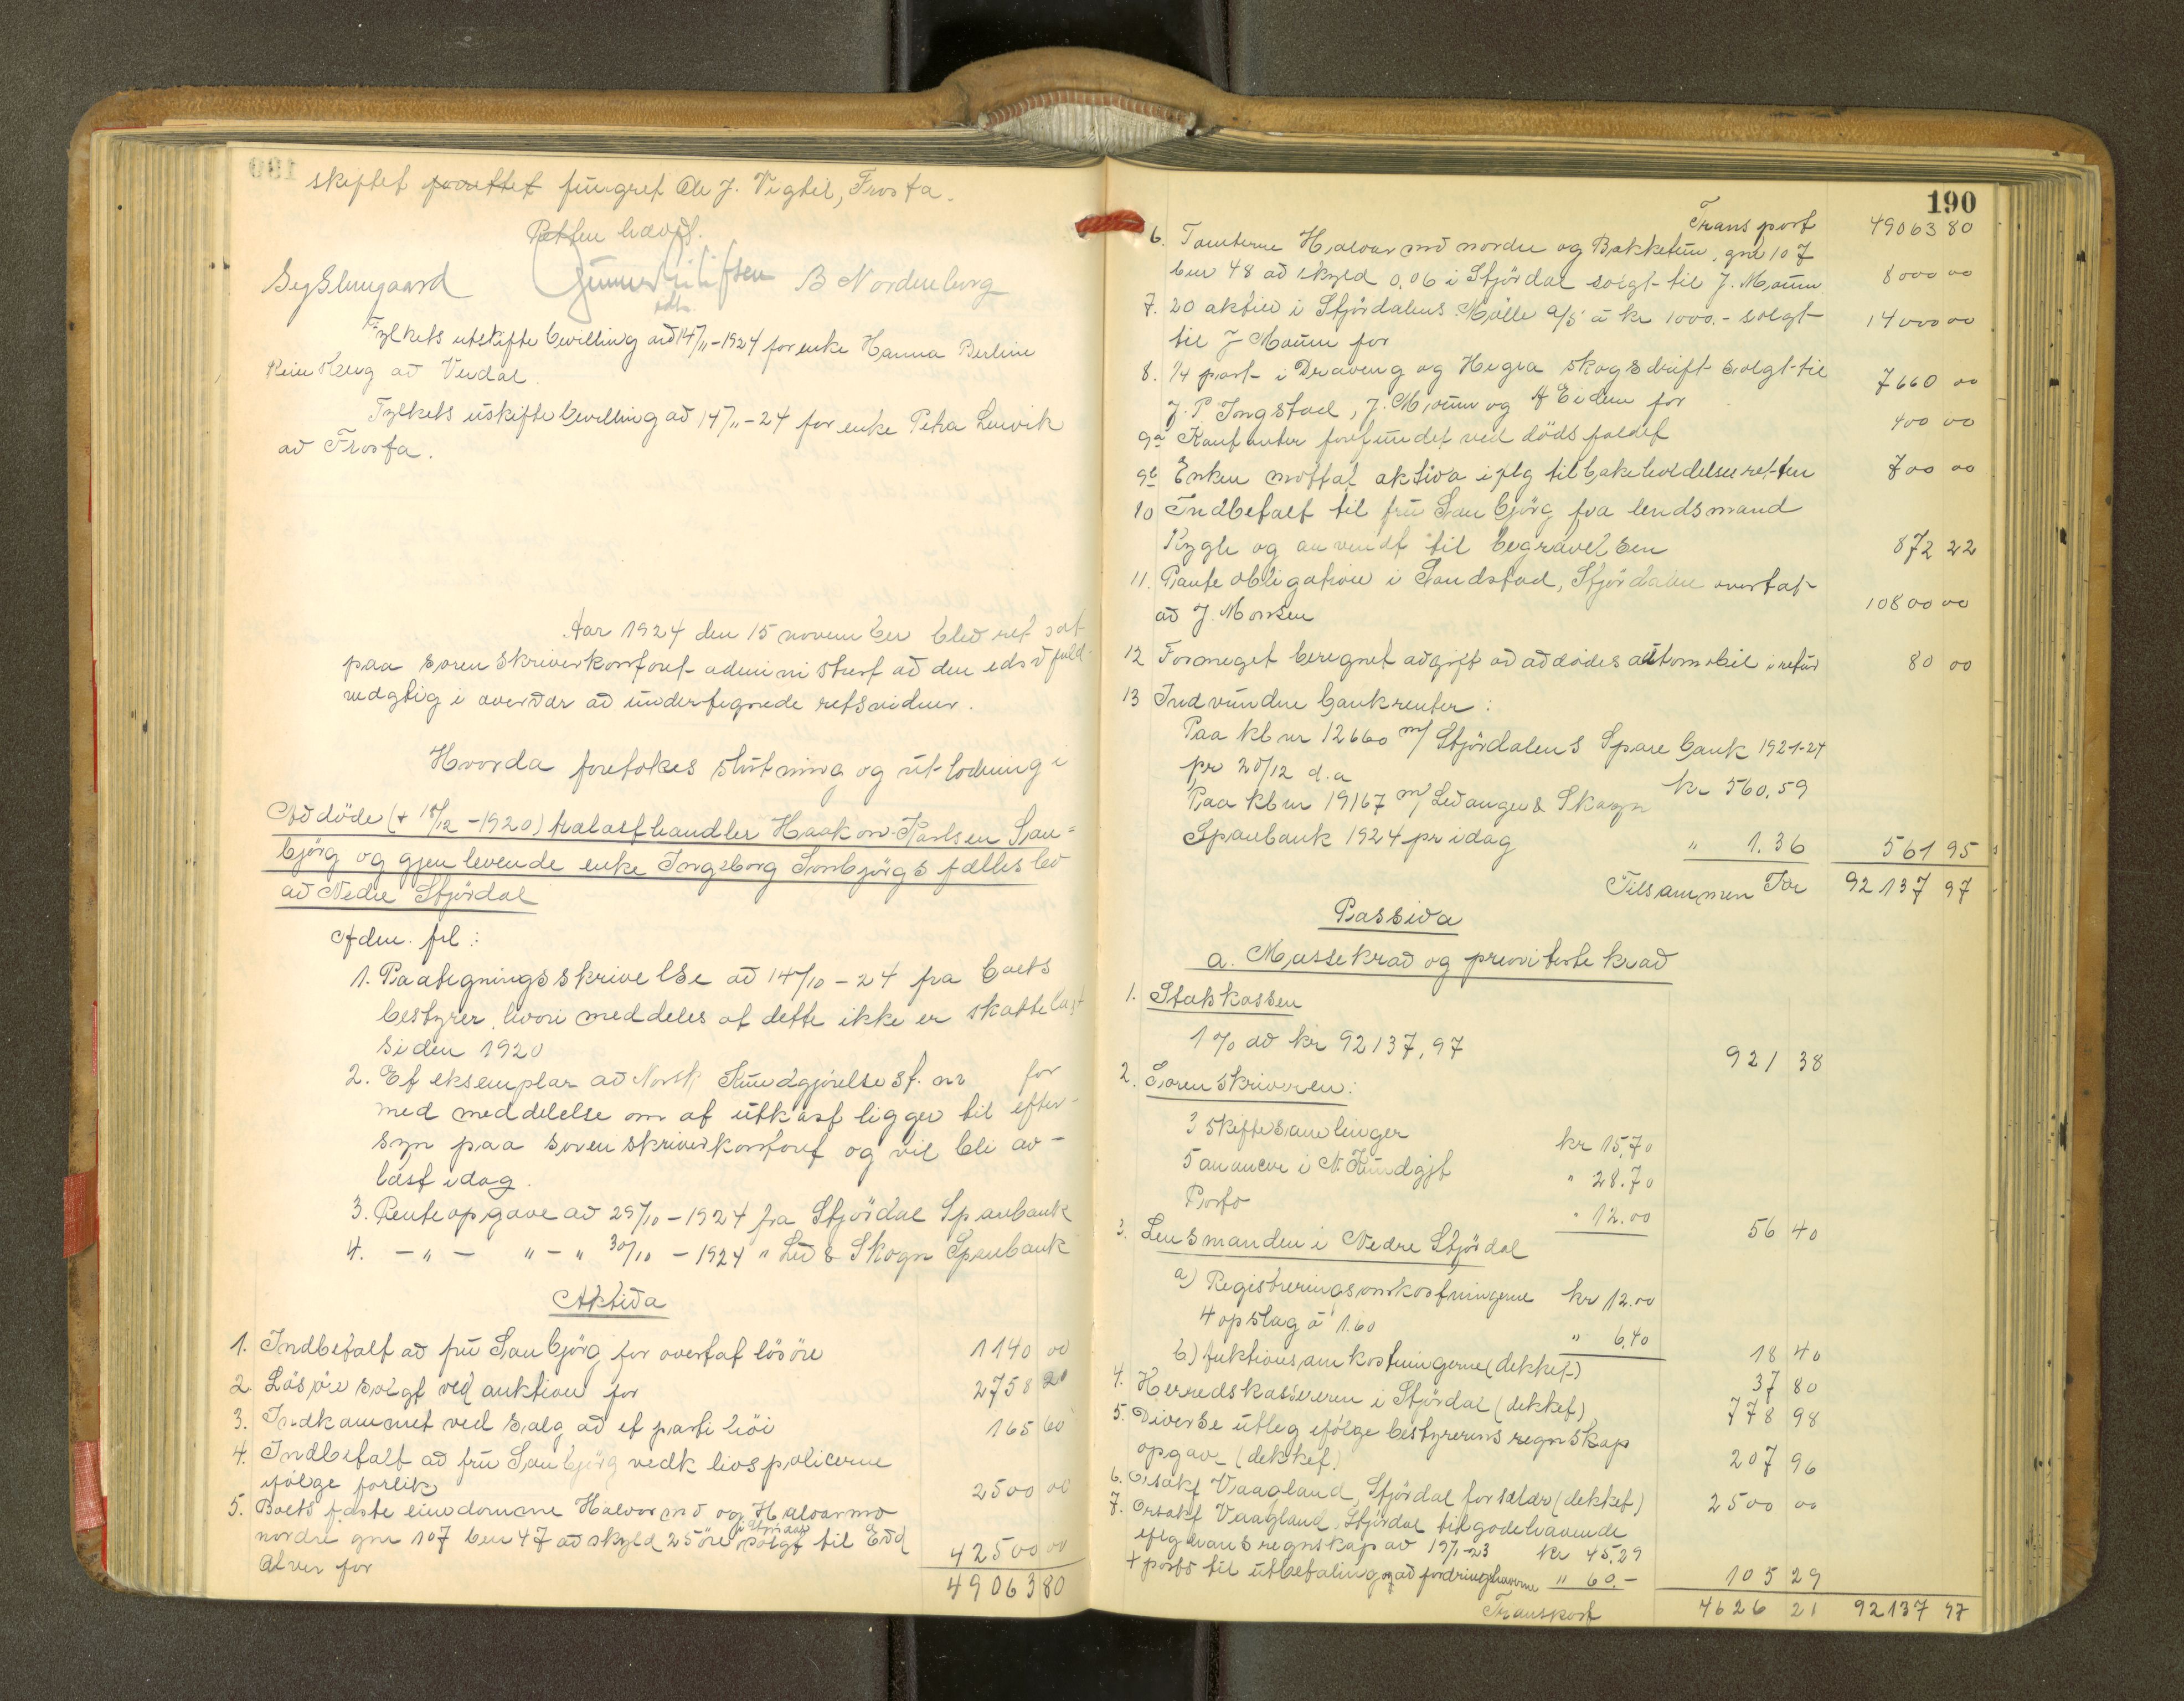 skiftet forrettet fungret Ole J. Vigtil, Frosta.
Retten hævet.
B Nordenborg
Fylkets utskifte bevilling av 14/11-1924 for enke Hanna Berline
av Verdal.
Fylkets uskifte bevilling av 14/11-24 for enke Petra Leirvik
av Frosta.
Aar 1924 den 15 november blev ret sat
paa sorenskriverkontoret administrert av den edsv. fuld-
mægtig i overvær av undertegnede retsvidner.
Hvorda foretokes slutning og utlodning i
Avdöde († 18/12-1920) trælasthandler Haakon Karlsen San-
björg og gjenlevende enke Ingeborg Sanbjörgs fælles bo
av Nedre Stjördal
Adm. frl:
1. Paategningsskrivelse av 14/10-24 fra boets
bestyrer, hvori meddeles at dette ikke er skattelagt
siden 1920
2. Et eksemplar av Norsk Kundgjörelsest. nr for
med meddelelse om at utkast ligger til efter-
syn paa sorenskriverkontoret og vil bli av-
læst idag.
3. Renteopgave av 29/10-1924 fra Stjördal Sparebank
4. -"- "-" 30/10-1924 " Lev & Skogn Sparebank
Aktiva
1. Indbetalt av fru Sanbjörg for overtat lösöre 1140 00
2. Lösöre solgt ved auktion for 2758 20
3. Indkommet ved salg av et parti höi 165 60
4. Indbetalt av fru Sanbjörg vedk livspolicerne
ifölge forlik 2500 00
5. Boets faste eiendomme Halvormo og Halvarmo
nordre gnr 107 bnr 47 av skyld 25 öre i Stjördal solgt til Edv
Alver for 42500 00
49063 80
190
Transport 49063 80
6. Tomterne Halvarmo nordre og Bakketun, gnr 107
bnr 48 av skyld 0,06 i Stjördal solgt til J. Moum 8000 00
7. 20 aktier i Stjördalens Mölle A/S á kr 1000.- solgt
til J Moum for 14000 00
8. 1/4 part i Draveng og Hegra skogsdrift solgt til
J. P. Ingstad, J. Moum og A Eidem for 7660 00
9a Kontanter forefundet ved dödsfaldet 400 00
9b Enken mottat aktiva iflg tilbakeholdelsesretten 700 00
10 Indbetalt til fru Sanbjörg fra lendsmand
Rygh og anvendt til begravelsen 872 22
11. Pante obligation i Sandstad, Stjördalen overtat
av J. Morken 10800 00
12 Formeget beregnet avgift av avdödes automobil 80 00
13 Indvundne bankrenter:
Paa kb nr 12660 m/ Stjördalens Sparebank 1921-24
pr 20/12 d.a kr 560,59
Paa kb nr 19167 m/ Levanger & Skogn
Sparebank 1924 pr idag " 1.36 561 95
Tilsammen Kr 92137 97
Passiva
a. Massekrav og prioriterte krav
1. Statskassen
1 % av kr 92137,97 921 38
2. Sorenskriveren:
3 skiftesamlinger kr 15,70
5 anoncer i N. Kundgjt " 28.70
Porto " 12.00 56 40
3. Lensmanden i Nedre Stjördal
a) Registreringsomkostningerne kr 12.00
4 opslag á 1.60 " 6,40 18 40
b) Auktionsomkostningerne (dekket) 37 80
4. Herredskassereren i Stjördal (dekket) 778 98
5. Diverse utleg ifölge bestyrerens regnskap
opgav (dekket) 207 96
6. O,sakf Vaagland, Stjördal for salær (dekket) 2500 00
7. Orsakf Vaagland, Stjördal tilgodehavende
iflg hans regnskap av 19/1-23 kr 45,29
+ porto til utbetaling av fordringshaverne " 60.- 105 29
Transport 4626 21 92137 97